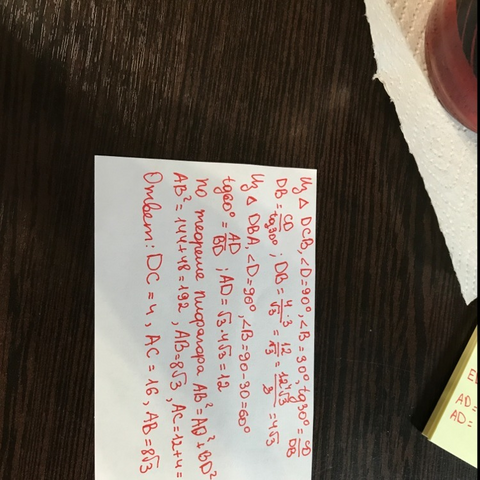 Из △ DCB, <D=90°, <B=30°, tg30°=CD/DB
DB=CD/tg30°; DB=4·3/√3=12/√3=12√3/3=4√3
Из △ DBA, <D=90°, <B=90-30=60°
tg60°=AD/BD; AD=√3·4√3=12
по теореме пифагора AB²=AD²+BD²
AB²=144+48=192, AB=8√3, AC=12+4=
Ответ: DC=4, AC=16, AB=8√3
AD=
AD=